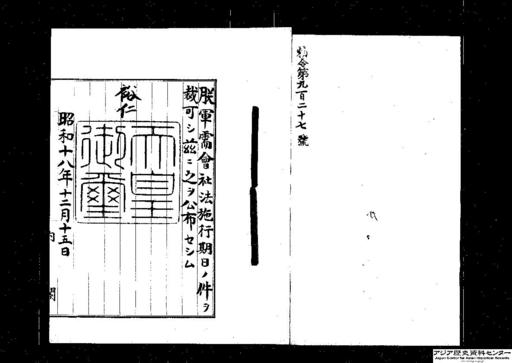 勅令第九百二十七號
朕軍需會社法施行期日ノ件ヲ
裁可シ玆ニ之ヲ公布セシム
裕仁
天皇
御璽
昭和十八年十二月十五日
内閣
アジア歴史資料センター
Japan Center for Asian Historical Records